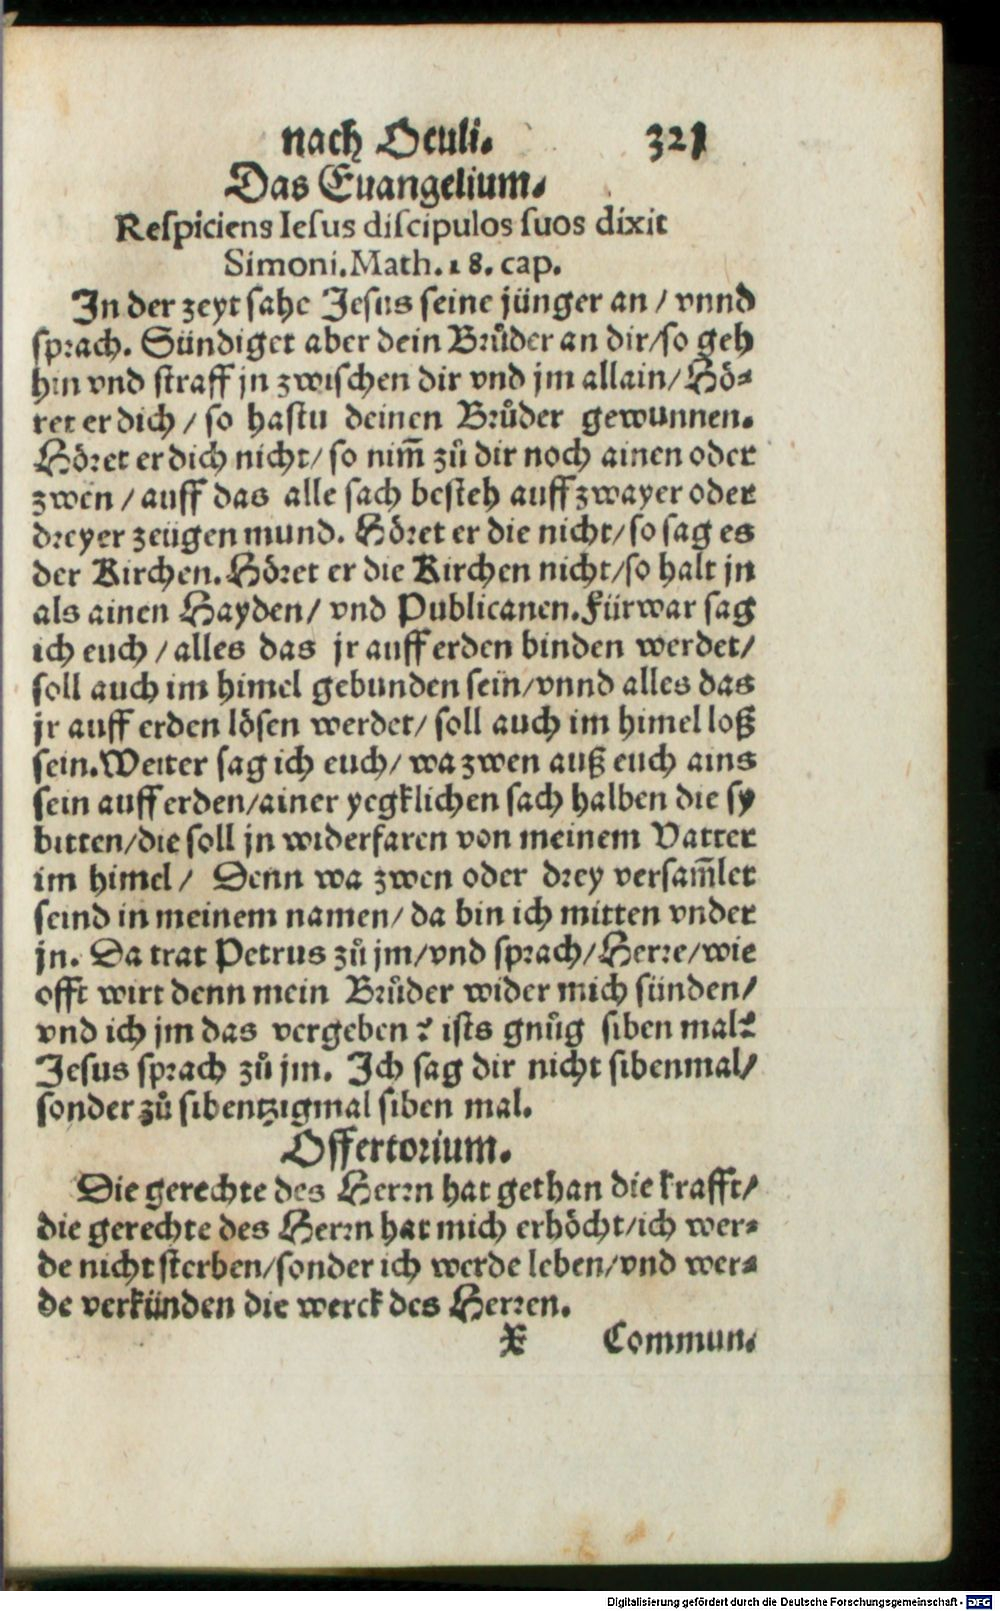 nach Oculi. 321
Das Euangelium.
Respiciens Iesus discipulos suos dixit
Simoni. Math. 18. cap.
In der zeyt sahe Jesus seine jünger an / vnnd
sprach. Sündiget aber dein Brůder an dir/so geh
hin vnd straff jn zwischen dir vnd jm allain/Hö⸗
ret er dich / so hastu deinen Brůder gewunnen.
Höret er dich nicht/ so nim̃ zů dir noch ainen oder
zwen / auff das alle sach besteh auff zwayer oder
dreyer zeügen mund. Höret er die nicht/so sag es
der Kirchen. Höret er die Kirchen nicht/so halt jn
als ainen Hayden/ vnd Publicanen. Fürwar sag
ich euch / alles das jr auff erden binden werdet/
soll auch im himel gebunden sein/vnnd alles das
jr auff erden lösen werdet/ soll auch im himel loß
sein. Weiter sag ich euch/ wa zwen auß euch ains
sein auff erden/ainer yegklichen sach halben die sy
bitten/die soll jn widerfaren von meinem Vatter
im himel/ Denn wa zwen oder drey versam̃let
seind in meinem namen/ da bin ich mitten vnder
jn. Da trat Petrus zů jm/vnd sprach/Herre/wie
offt wirt denn mein Brůder wider mich sünden/
vnd ich jm das vergeben? ists gnůg siben mal?
Jesus sprach zů jm. Ich sag dir nicht sibenmal/
sonder zů sibentzigmal siben mal.
Offertorium.
Die gerechte des Herrn hat gethan die krafft/
die gerechte des Herrn hat mich erhöcht/ich wer⸗
de nicht sterben/sonder ich werde leben/vnd wer⸗
de verkünden die werck des Herren.
X Commun.
Digitalisierung gefördert durch die Deutsche Forschungsgemeinschaft - DFG